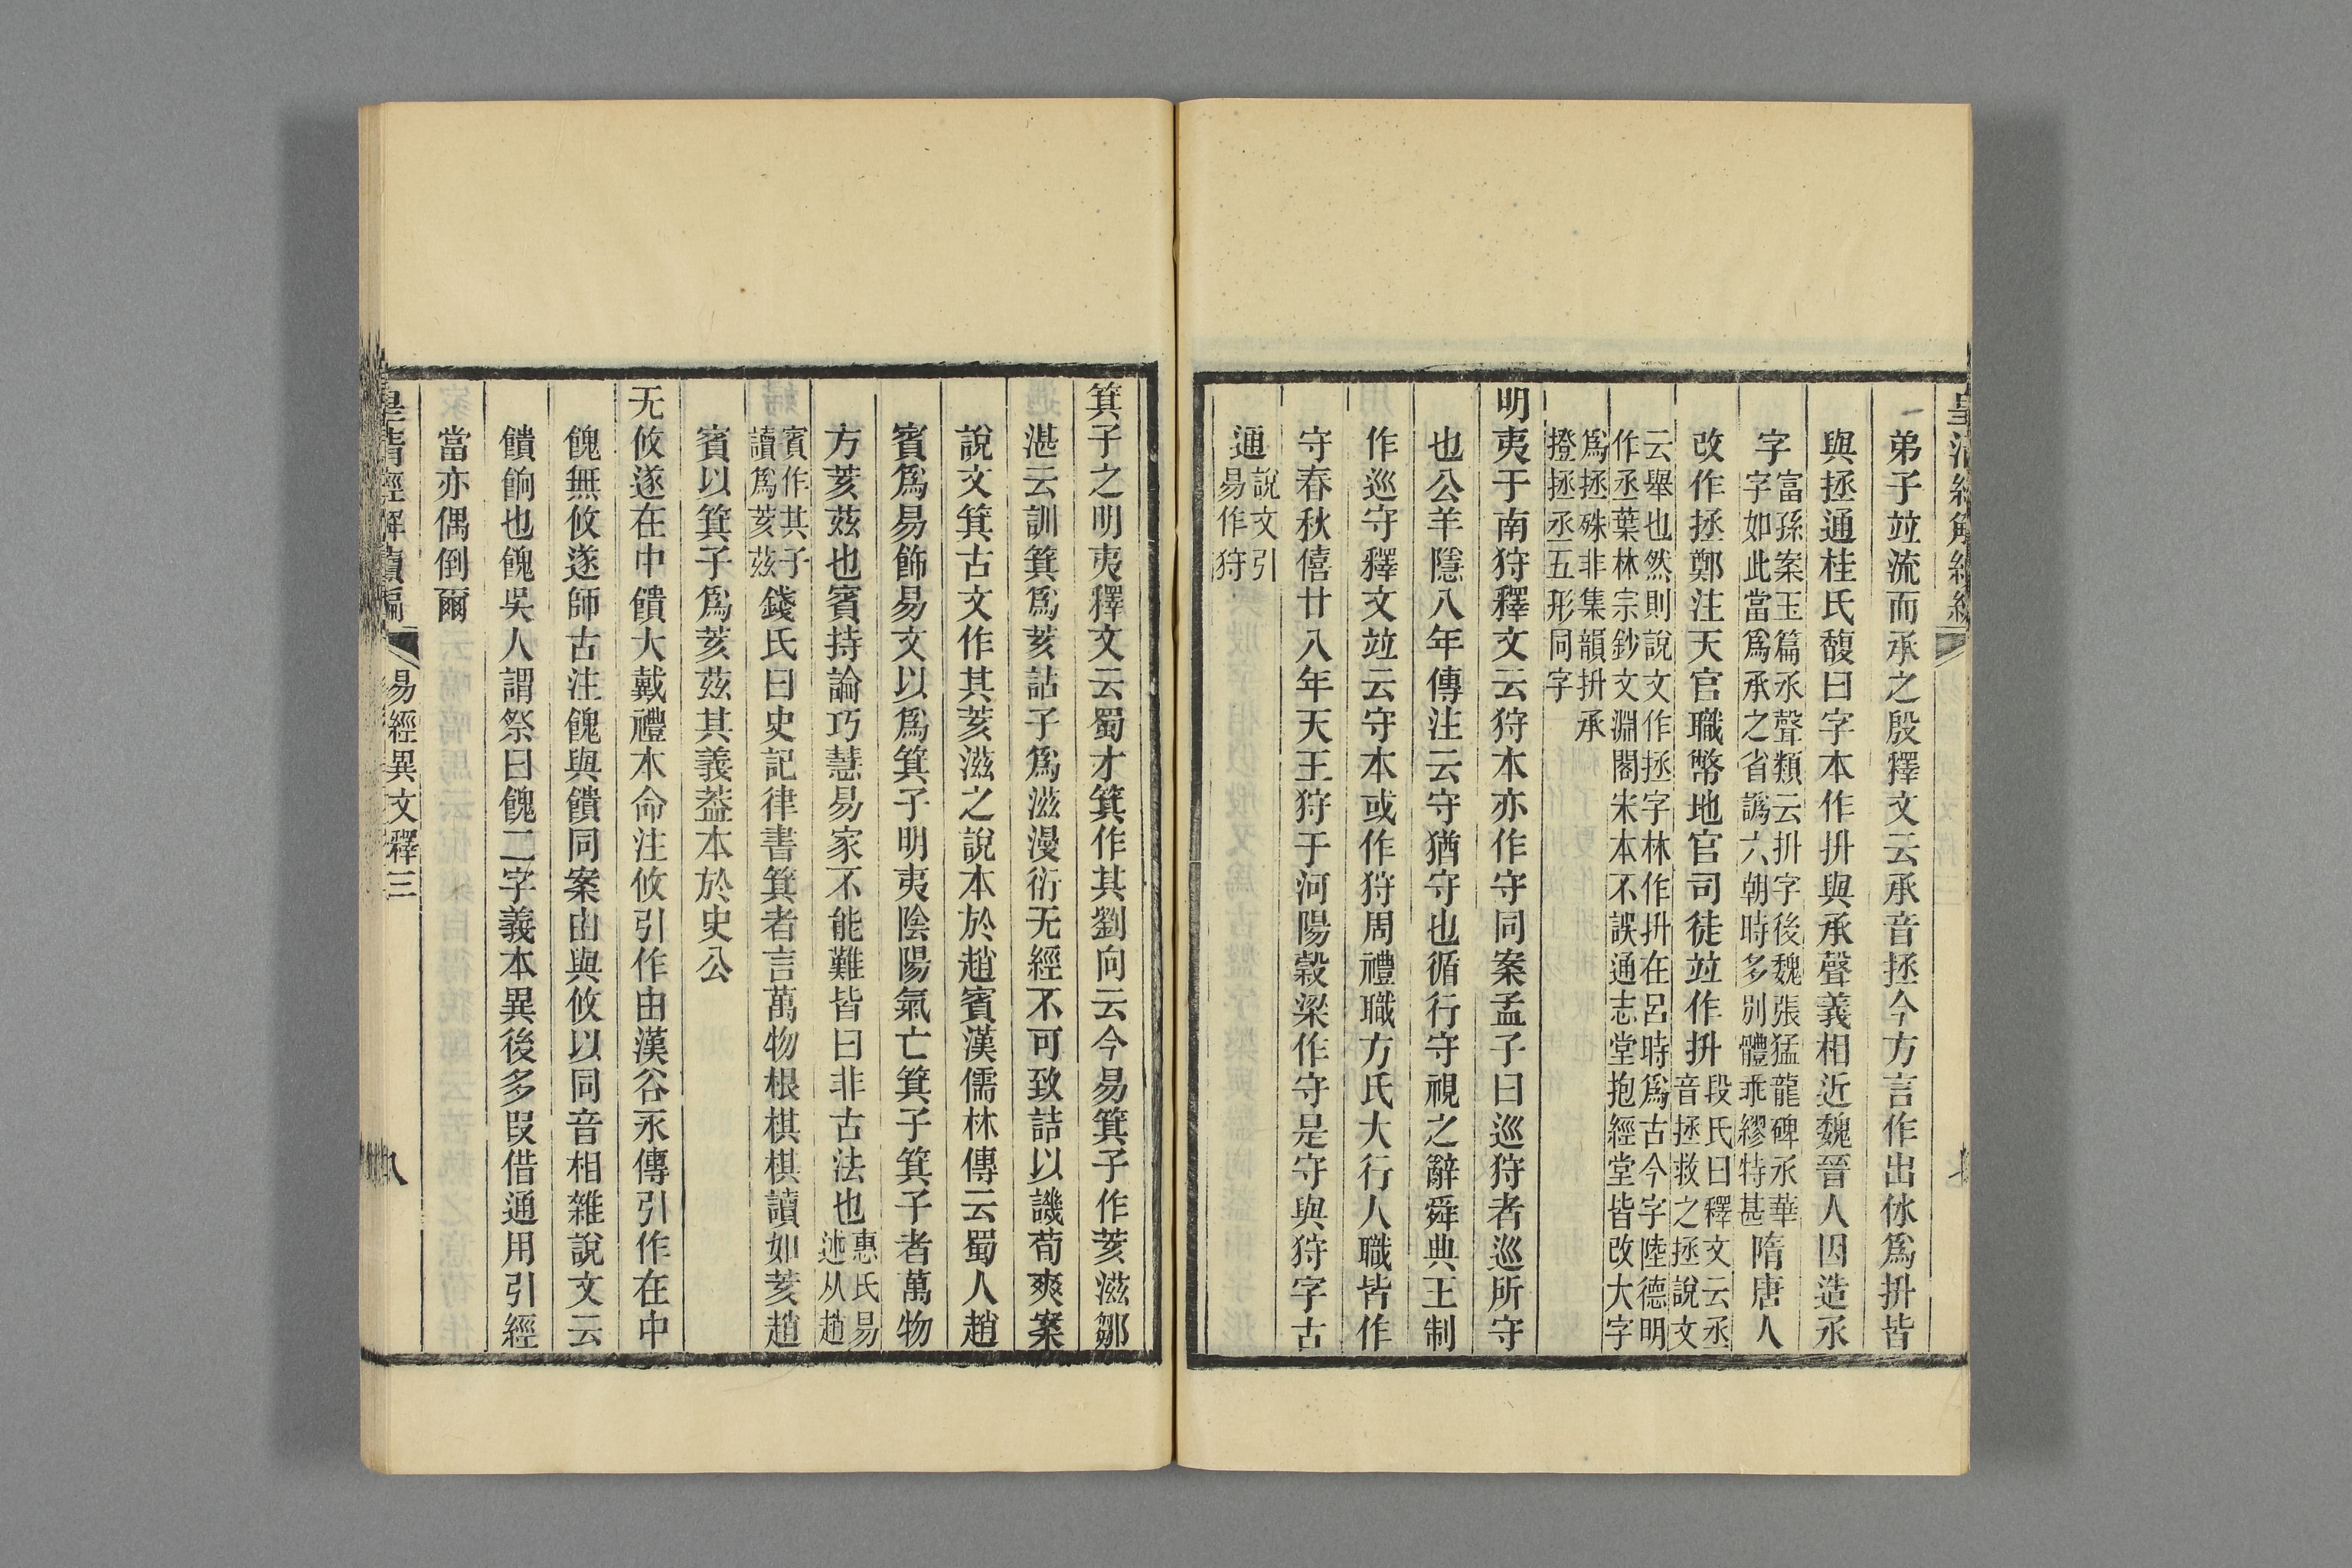 弟子竝流而承之殷釋文云承音拯今方言作出㳄爲抍皆
與拯通桂氏馥曰字本作抍與承聲義相近魏晉人因造氶
字富孫案玉篇氶聲類云抍字後魏張猛龍碑氶華
字如此當爲承之省譌六朝時多別體乖繆特甚隋唐人
改作拯鄭注天官職幣地官司徒竝作抍段氏曰釋文云丞
音拯救之拯說文
云舉也然則說文作拯字林作抍在呂時爲古今字陸德明
作丞葉林宗鈔文淵閣宋本不誤通志堂抱經堂皆改大字
爲拯殊非集韻抍承
撜拯丞五形同字
明夷于南狩釋文云狩本亦作守同案孟子曰巡狩者巡所守
也公羊隱八年傳注云守猶守也循行守視之辭舜典王制
作巡守釋文竝云守本或作狩周禮職方氏大行人職皆作
守春秋僖廿八年天王狩于河陽穀梁作守是守與狩字古
通說文引
易作狩
箕子之明夷釋文云蜀才箕作其劉向云今易箕子作荄滋鄒
湛云訓箕爲荄詁子爲滋漫衍无經不可致詰以譏荀爽案
說文箕古文作其荄滋之說本於趙賓漢儒林傳云蜀人趙
賓爲易飾易文以爲箕子明夷陰陽氣亡箕子箕子者萬物
方荄茲也賓持論巧慧易家不能難皆曰非古法也惠氏易
述从趙
賓作其子
讀爲荄茲錢氏曰史記律書箕者言萬物根棋棋讀如荄趙
賓以箕子爲荄茲其義葢本於史公
无攸遂在中饋大戴禮本命注攸引作由漢谷永傳引作在中
餽無攸遂師古注餽與饋同案由與攸以同音相雜說文云
饋餉也餽吳人謂祭曰餽二字義本異後多叚借通用引經
當亦偶倒爾
皇清經解續編 易經異文釋三 八